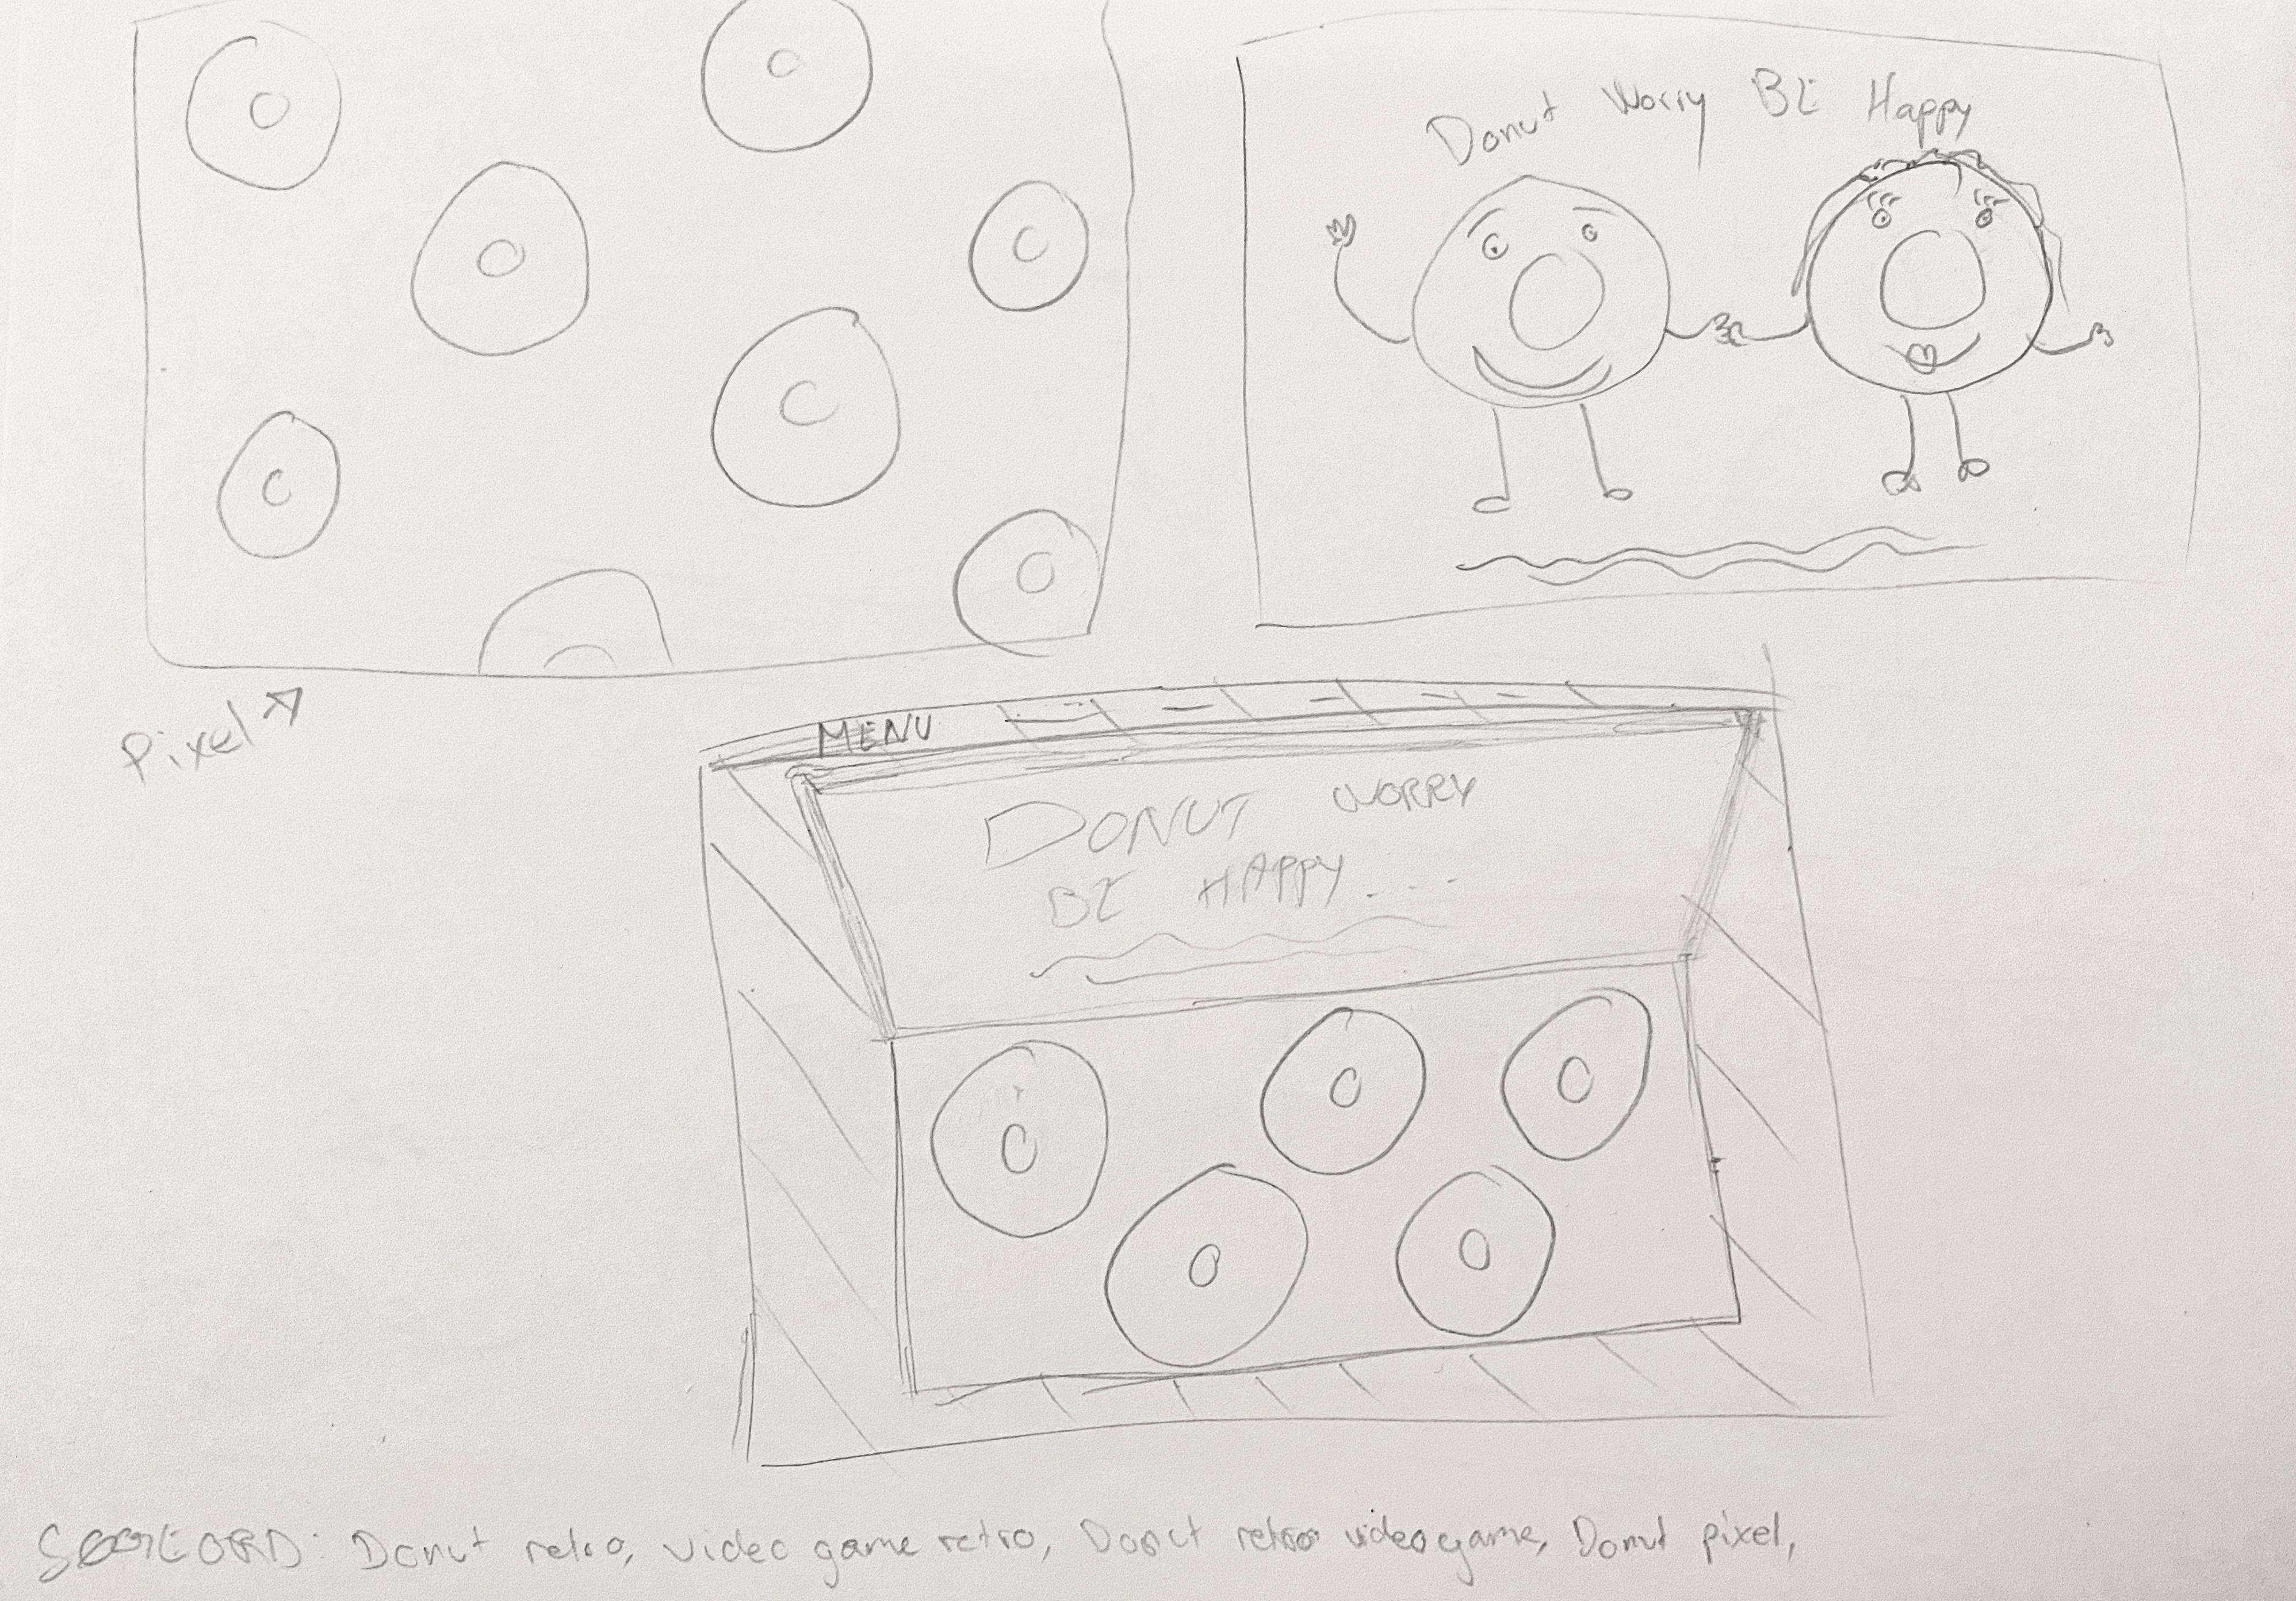 Donut Worry BE Happy
Pixel
MENU
DONUT WORRY
BE HAPPY....
Donut retro, video game retro, Donut retro videogame, Donut pixel,